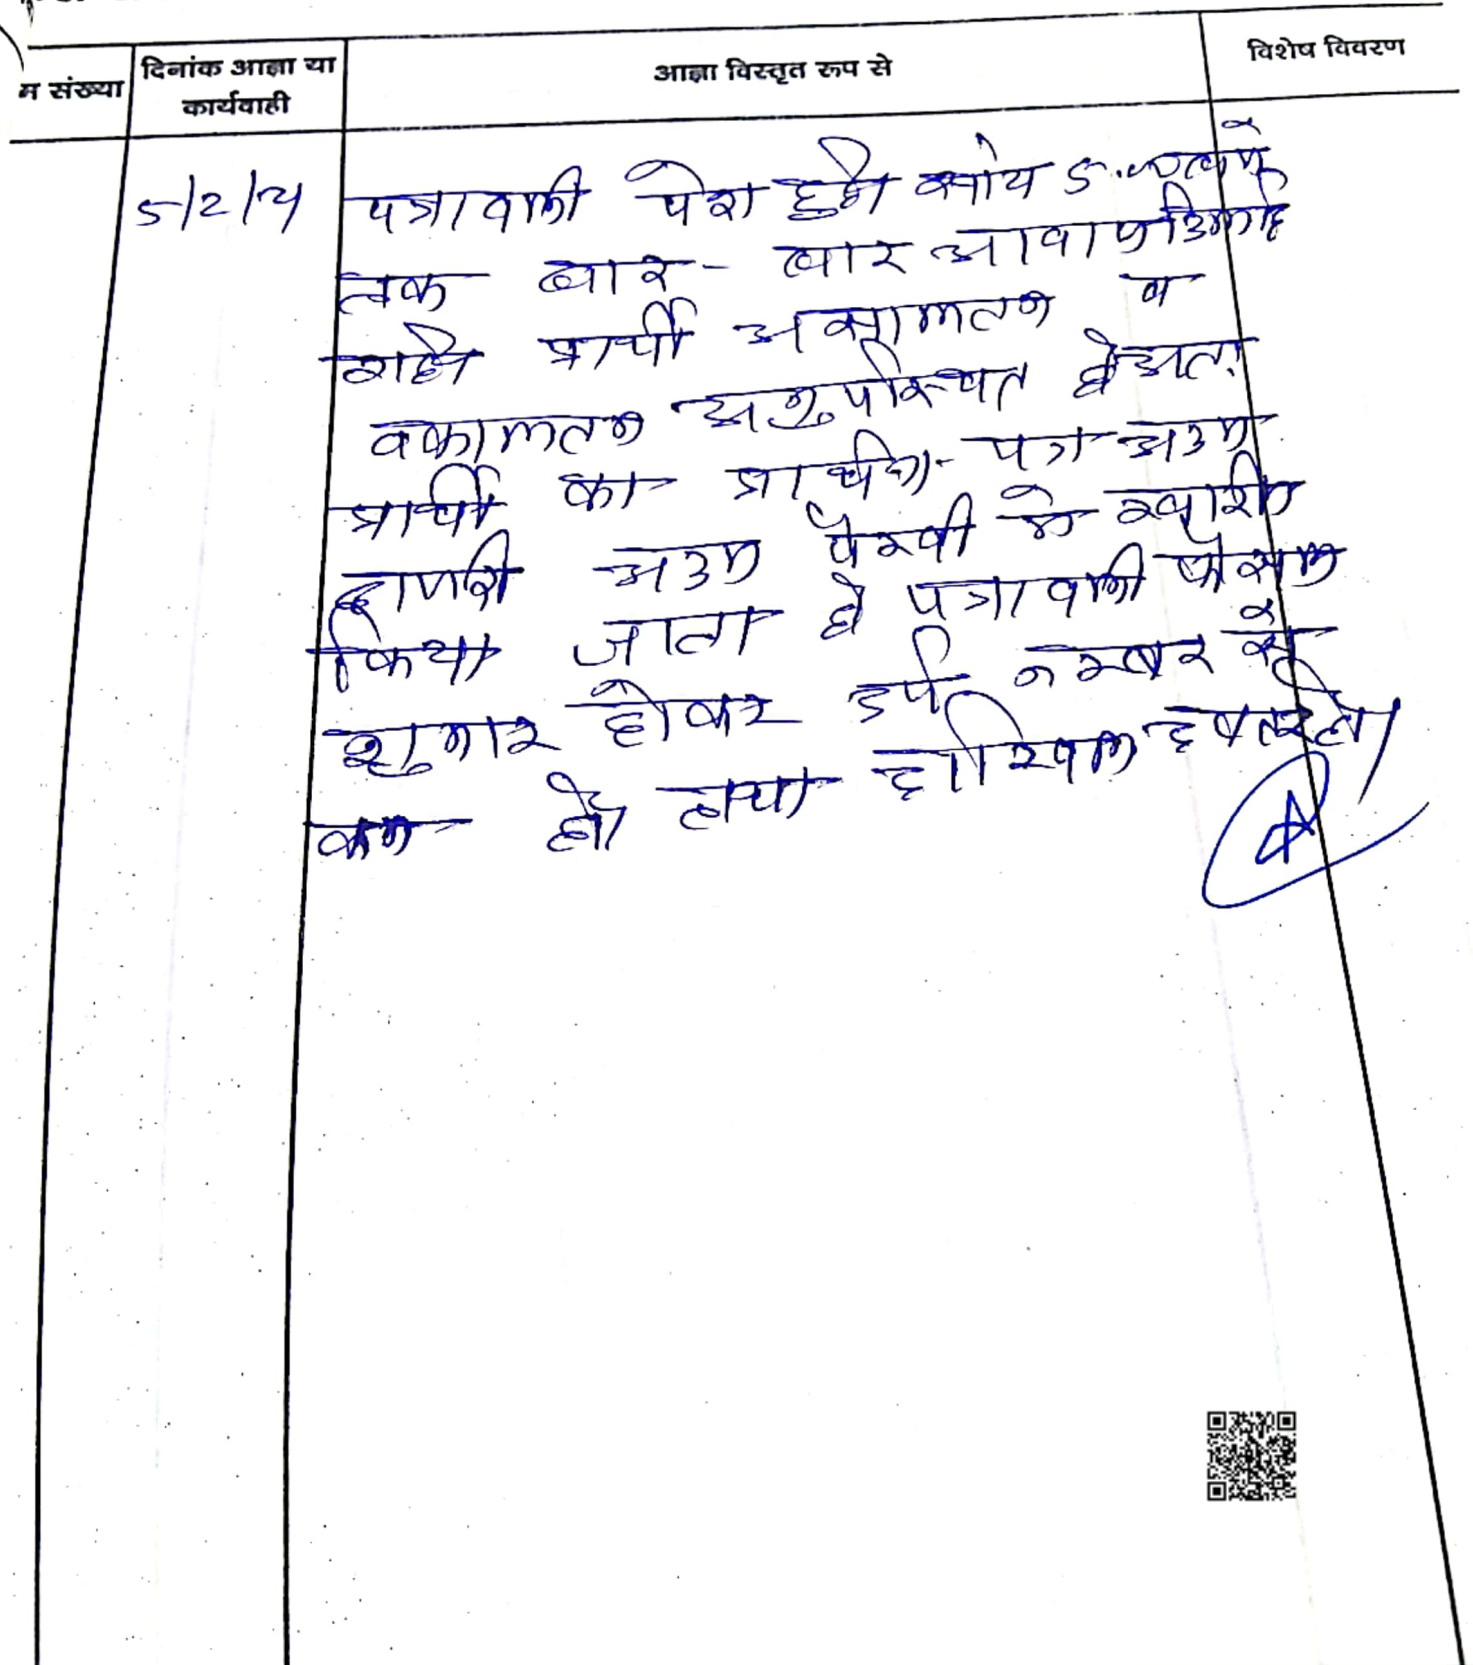 म संख्या
दिनांक आज्ञा या कार्यवाही
आज्ञा विस्तृत रूप से
विशेष विवरण
5/2/24
पत्रावली पेश हुई सांय 5.00 बजे
तक बार - बार आवाज दिलाई
गई प्रार्थी असालतन व
वकालतन अनुपस्थित है अतः
प्रार्थी का प्रार्थना-पत्र अदम
हाजरी अदम पैरवी मे खारीज
किया जाता है पत्रावली फैसल
शुमार होकर दर्ज नम्बर से
कम हो तथा दाखिल दफ्तर हो।